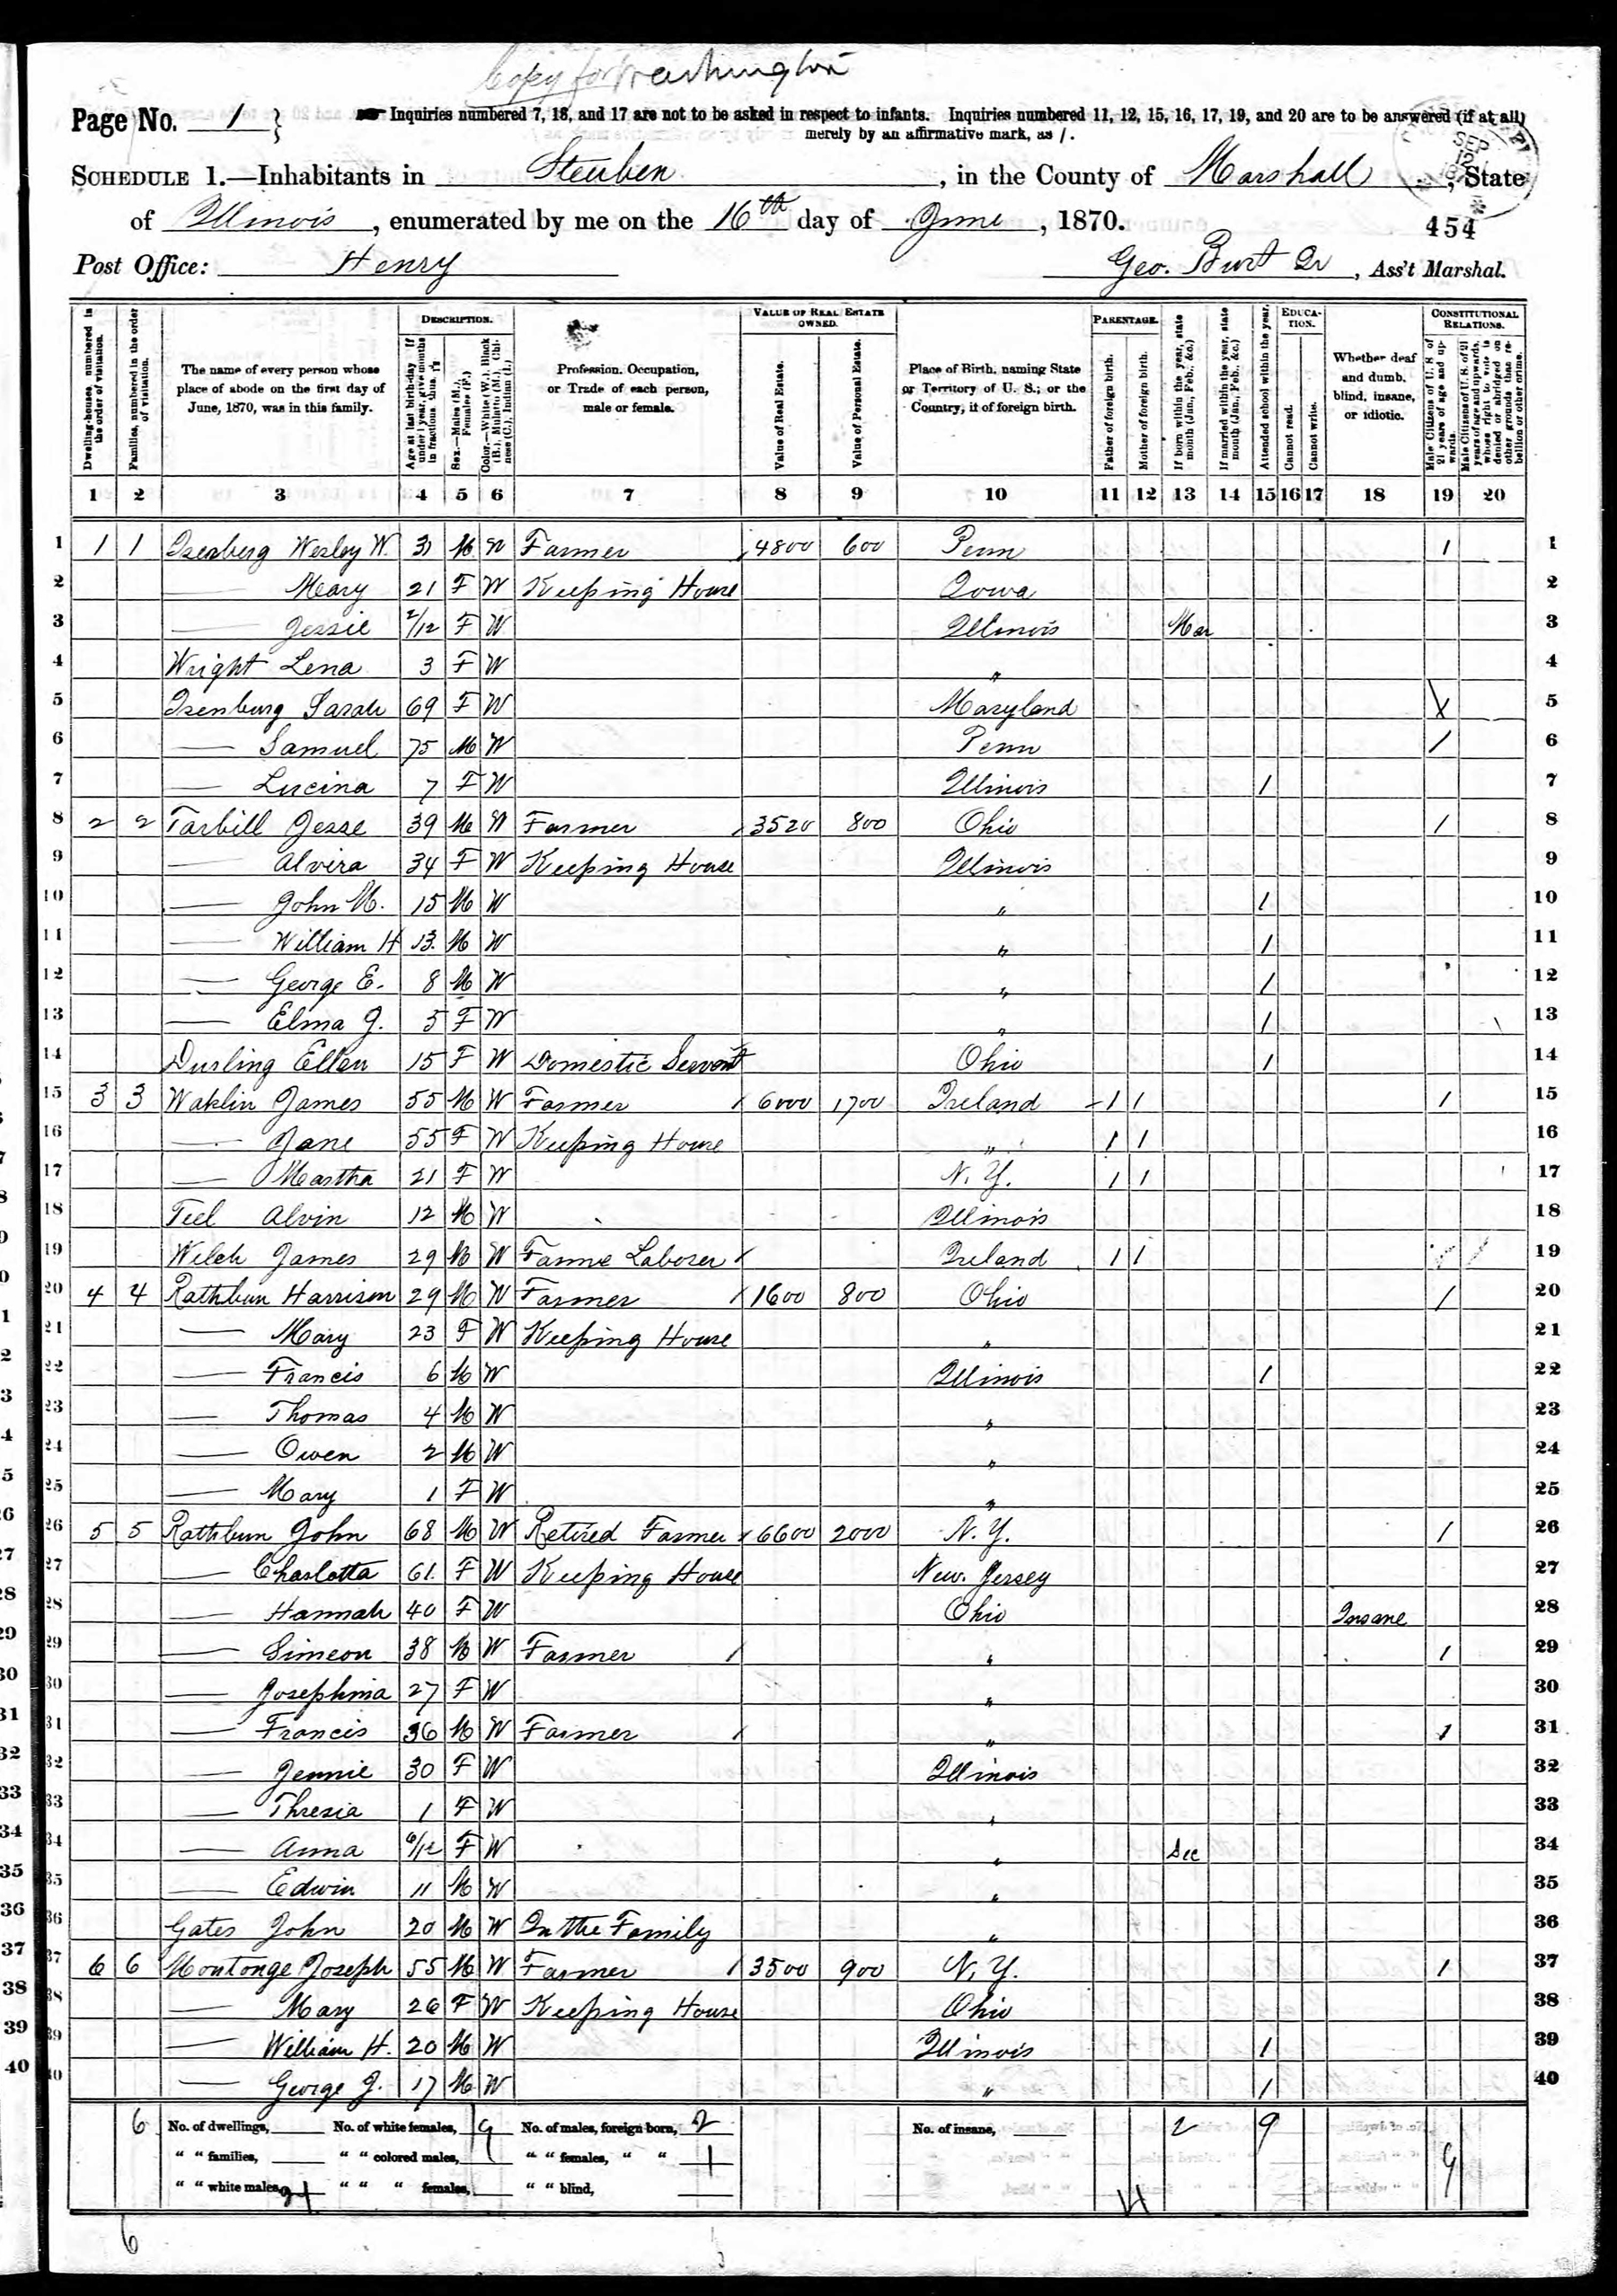 Copy for Washington
Page No. 1 } Inquiries numbered 7, 18, and 17 are not to be asked in respect to infants. Inquiries numbered 11, 12, 15, 16, 17, 19, and 20 are to be answered (if at all)
merely by an affirmative mark, as /.
SCHEDULE 1.—Inhabitants in Steuben, in the County of Marshall, State
of Illinois, enumerated by me on the 16th day of June, 1870.
454
Post Office: Henry Geo. Burt Jr, Ass't Marshal.
SEP 12
Dwelling-houses, numbered in the order of visitation.
Families, numbered in the order of visitation.
The name of every person whose place of abode on the first day of June, 1870, was in this family.
DESCRIPTION.
Age at last birth-day. If under 1 year, give months in fractions, thus, 3/12.
Sex.—Males (M.), Females (F.)
Color.—White (W.), Black (B.), Mulatto (M.), Chinese (C.), Indian (I.)
Profession, Occupation, or Trade of each person, male or female.
VALUE OF REAL ESTATE OWNED.
Value of Real Estate.
Value of Personal Estate.
Place of Birth, naming State or Territory of U. S.; or the Country, if of foreign birth.
PARENTAGE.
Father of foreign birth.
Mother of foreign birth.
If born within the year, state month (Jan., Feb., &c.)
If married within the year, state month (Jan., Feb., &c.)
EDUCATION.
Attended school within the year.
Cannot read.
Cannot write.
Whether deaf and dumb, blind, insane, or idiotic.
CONSTITUTIONAL RELATIONS.
Male Citizens of U. S. of 21 years of age and upwards.
Male Citizens of U. S. of 21 years of age and upwards, whose right to vote is denied or abridged on other grounds than rebellion or other crime.
1 2 3 4 5 6 7 8 9 10 11 12 13 14 15 16 17 18 19 20
1 1 1 Isenberg Wesley W. 31 M W Farmer 4800 600 Penn 1 1
2 — Mary 21 F W Keeping House Iowa 2
3 — Jessie 2/12 F W Illinois Mar 3
4 Wright Lena 3 F W " 4
5 Isenburg Sarah 69 F W Maryland 5
6 — Samuel 75 M W Penn / 6
7 — Lucina 7 F W Illinois / 7
8 2 2 Tarbill Jesse 39 M W Farmer 3520 800 Ohio / 8
9 — Alvira 34 F W Keeping House Illinois 9
10 — John M. 15 M W " / 10
11 — William H 13 M W " / 11
12 — George E. 8 M W " / 12
13 — Elma J. 5 F W " / 13
14 Durling Ellen 15 F W Domestic Servant Ohio / 14
15 3 3 Waklin James 55 M W Farmer 6000 1700 Ireland 1 1 1 15
16 — Jane 55 F W Keeping House " 1 1 16
17 — Martha 21 F W N. Y. 1 1 17
18 Teel Alvin 12 M W Illinois 18
19 Welch James 29 M W Farme Laborer Ireland 1 1 19
20 4 4 Rathbun Harrison 29 M W Farmer 1600 800 Ohio / 20
21 — Mary 23 F W Keeping House " 21
22 — Francis 6 M W Illinois / 22
23 — Thomas 4 M W " 23
24 — Owen 2 M W " 24
25 — Mary 1 F W " 25
26 5 5 Rathbun John 68 M W Retired Farmer 6600 2000 N. Y. 1 26
27 — Charlotta 61 F W Keeping House New Jersey 27
28 — Hannah 40 F W Ohio Insane 28
29 — Simeon 38 M W Farmer " 1 29
30 — Josephina 27 F W " 30
31 — Francis 36 M W Farmer " 1 31
32 — Jennie 30 F W Illinois 32
33 — Thresia 1 F W " 33
34 — Anna 6/12 F W " Dec 34
35 — Edwin 11 M W " 35
36 Gates John 20 M W In the Family " 36
37 6 6 Montonge Joseph 55 M W Farmer 3500 900 N. Y. 1 37
38 — Mary 26 F W Keeping House Ohio 38
39 — William H. 20 M W Illinois / 39
40 — George J. 17 M W " / 40
6 No. of dwellings, No. of white females, 19 No. of males, foreign born, 2 No. of insane, 2 9
" " families, " " colored males, " " females, " " 1 9
" " white males, 21 " " " females, " " blind, 4
6